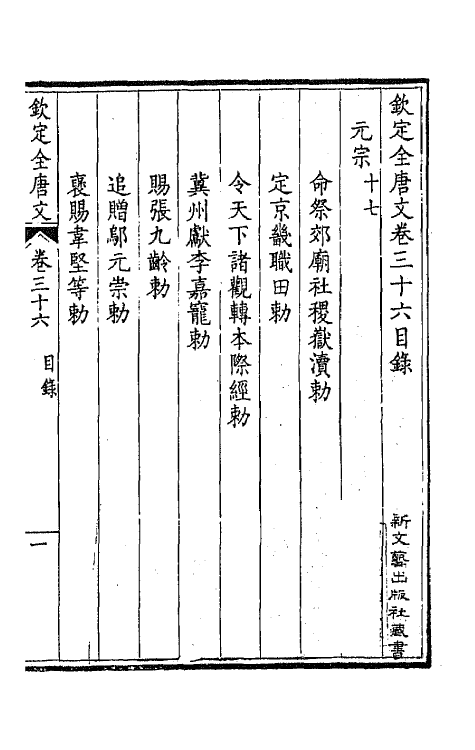 欽定全唐文卷三十六目錄
元宗十七
命祭郊廟社稷嶽瀆勅
定京畿職田勅
令天下諸觀轉本際經勅
冀州獻李嘉寵勅
賜張九齡勅
追贈鄔元崇勅
襃賜韋堅等勅
欽定全唐文 卷三十六 目錄 一
新文藝出版社藏書